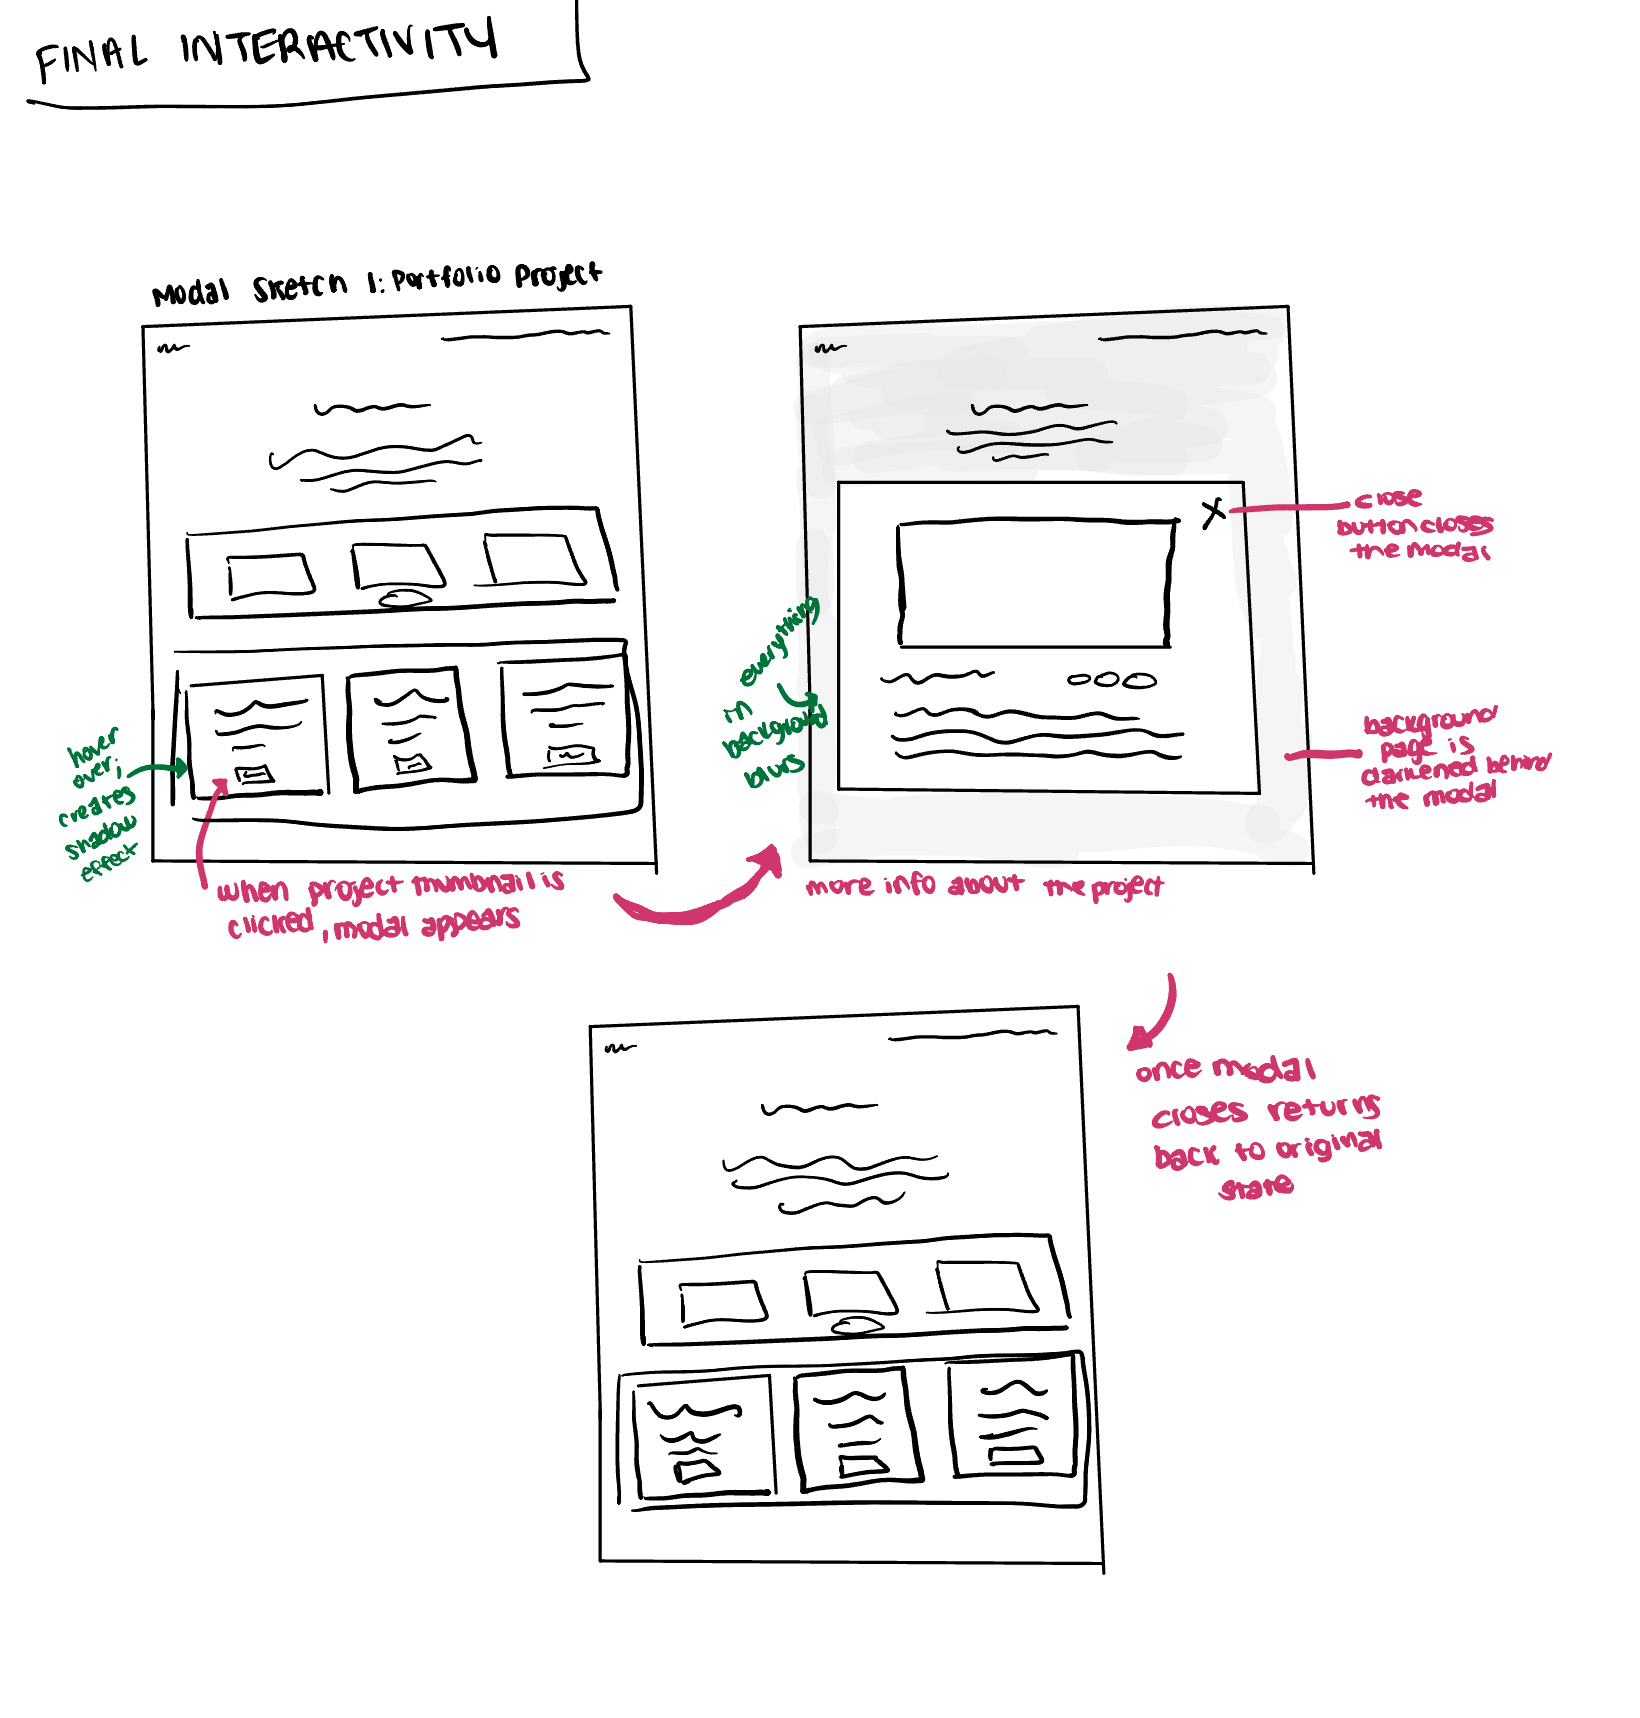 FINAL INTERACTIVITY
Modal Sketch 1: Portfolio Project
hover
over;
creates
shadow
effect
when project thumbnail is
clicked, modal appears
everything
in
background
blurs
X
close
button closes
the modal
background
page is
darkened behind
the modal
more info about the project
once modal
closes returns
back to original
state